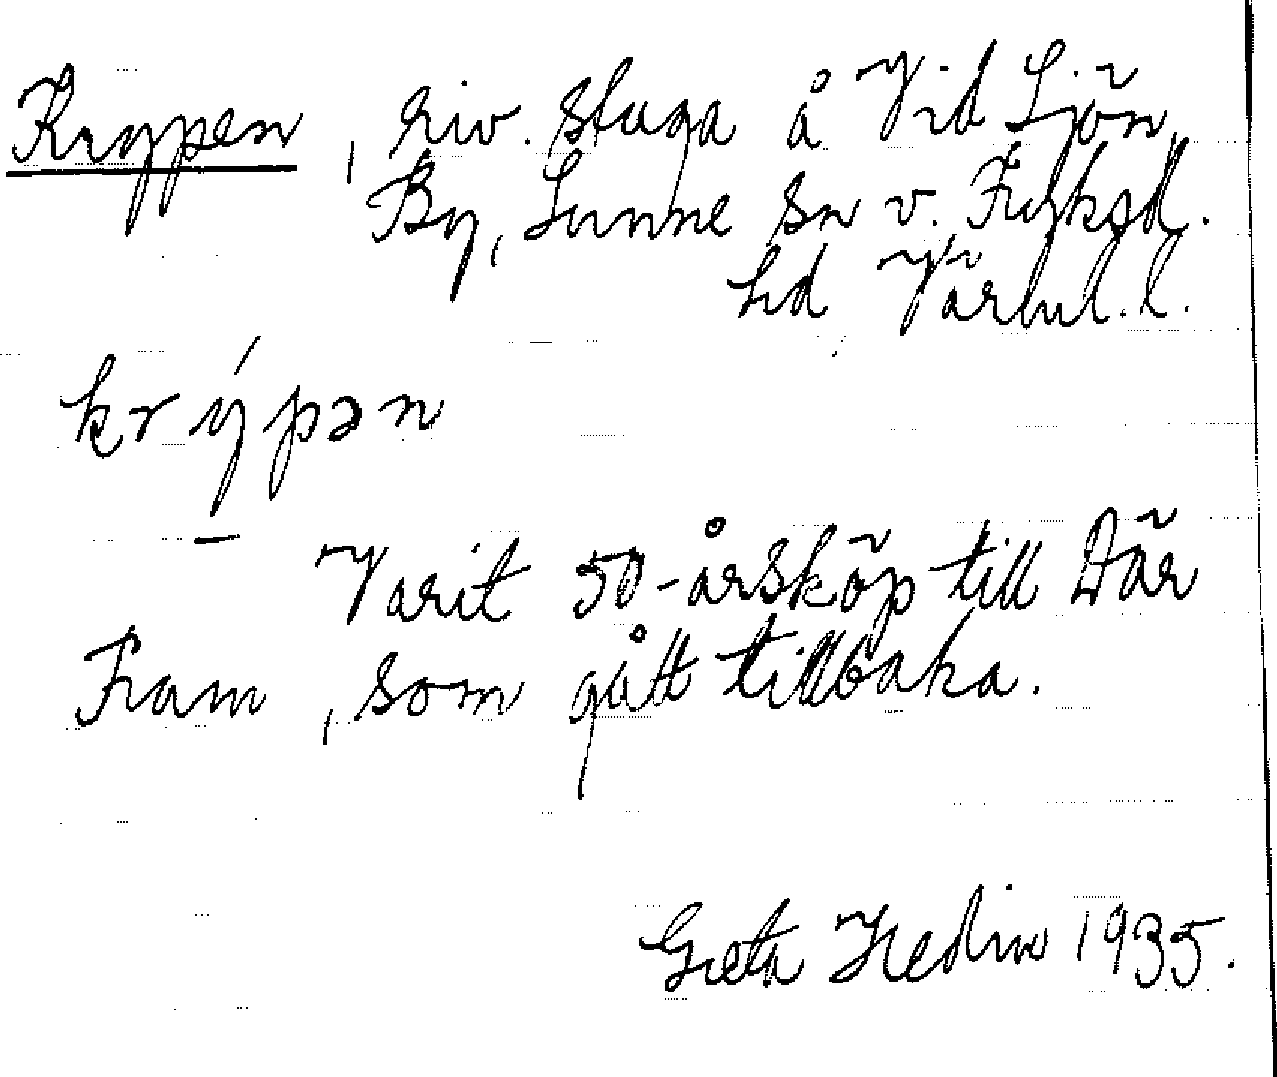 Kryppen, riv. stuga å Vid Sjön,
By, Sunne sn v. Fryksd.
hd Värml. l.
krýpən
Varit 50-årsköp till Där
Fram, som gått tillbaka.
Greta Hedin 1935.